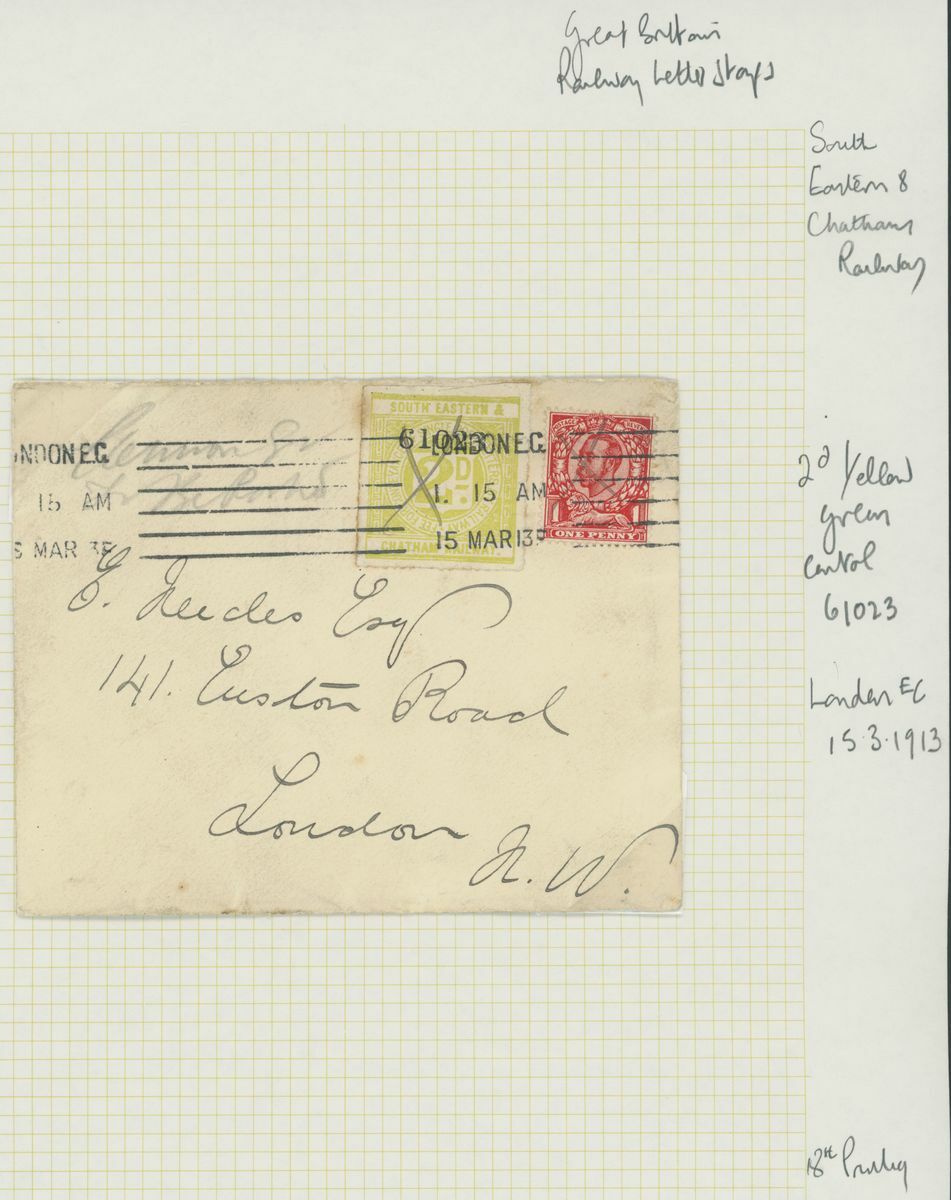 Great Britain
Railway Letter Stamps
South
Eastern &
Chatham
Railway
SOUTH EASTERN &
61023
2D
CHATHAM RAILWAY.
LONDON E.C.
1. 15 AM
15 MAR 13
NDON E.C.
15 AM
MAR 13
POSTAGE REVENUE
1 1
ONE PENNY
to be Posted
E. Needes Esq
141. Euston Road
London
N. W.
2d Yellow
green
control
61023
London EC
15.3.1913
18th Printing